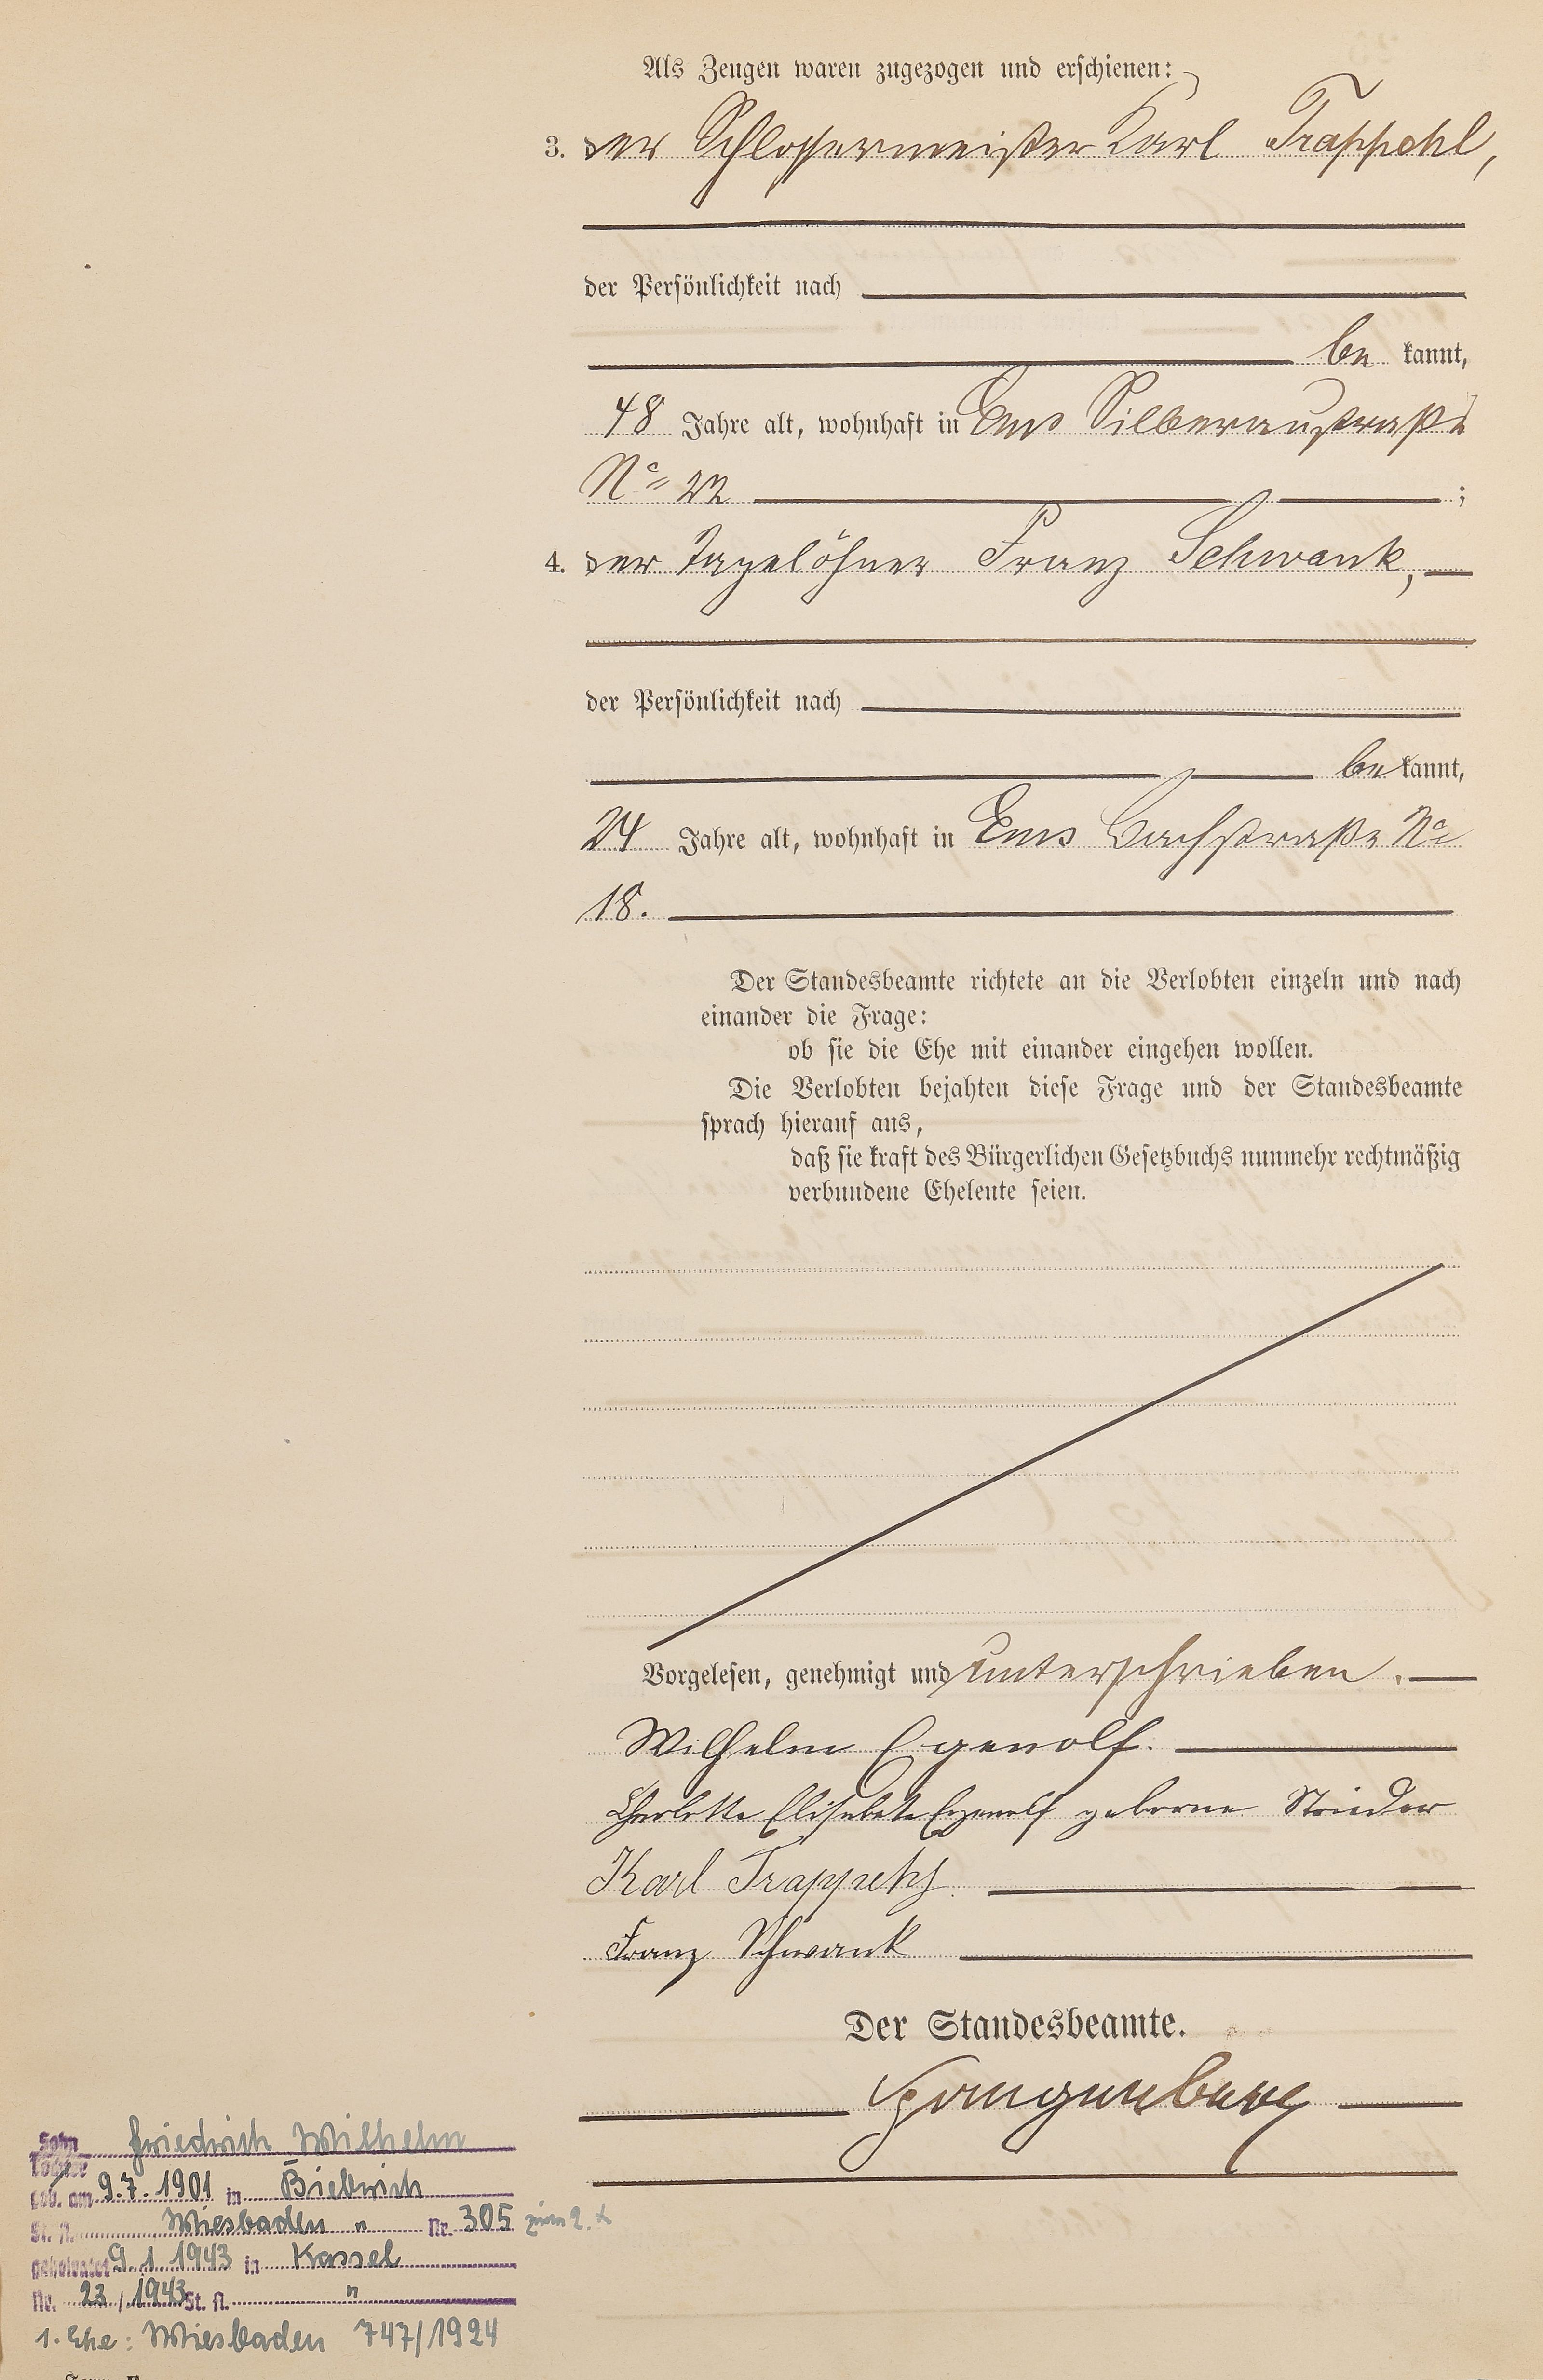 Als Zeugen waren zugezogen und erschienen:
3. der Schlossermeister Karl Trappehl,
der Persönlichkeit nach
be kannt,
48 Jahre alt, wohnhaft in Ems Silberaustraße
No 22 ;
4. der Tagelöhner Franz Schwank,
der Persönlichkeit nach
be kannt,
24 Jahre alt, wohnhaft in Ems Bachstraße No
18.
Der Standesbeamte richtete an die Verlobten einzeln und nach
einander die Frage:
ob sie die Ehe mit einander eingehen wollen.
Die Verlobten bejahten diese Frage und der Standesbeamte
sprach hierauf aus,
daß sie kraft des Bürgerlichen Gesetzbuchs nunmehr rechtmäßig
verbundene Eheleute seien.
Vorgelesen, genehmigt und unterschrieben.
Wilhelm Egenolf.
Charlotte Elisabete Egenolf geborne Strieder
Karl Trappehl
Franz Schwank
Der Standesbeamte.
Spangenberg
Sohn Friedrich Wilhelm
Tochter
geb. am 9.7.1901 in Biebrich
St. A. Wiesbaden " Nr. 305 zum 2. x
geheiratet 9.1.1943 in Kassel
Nr. 23/1943 St. A. "
1. Ehe: Wiesbaden 747/1924